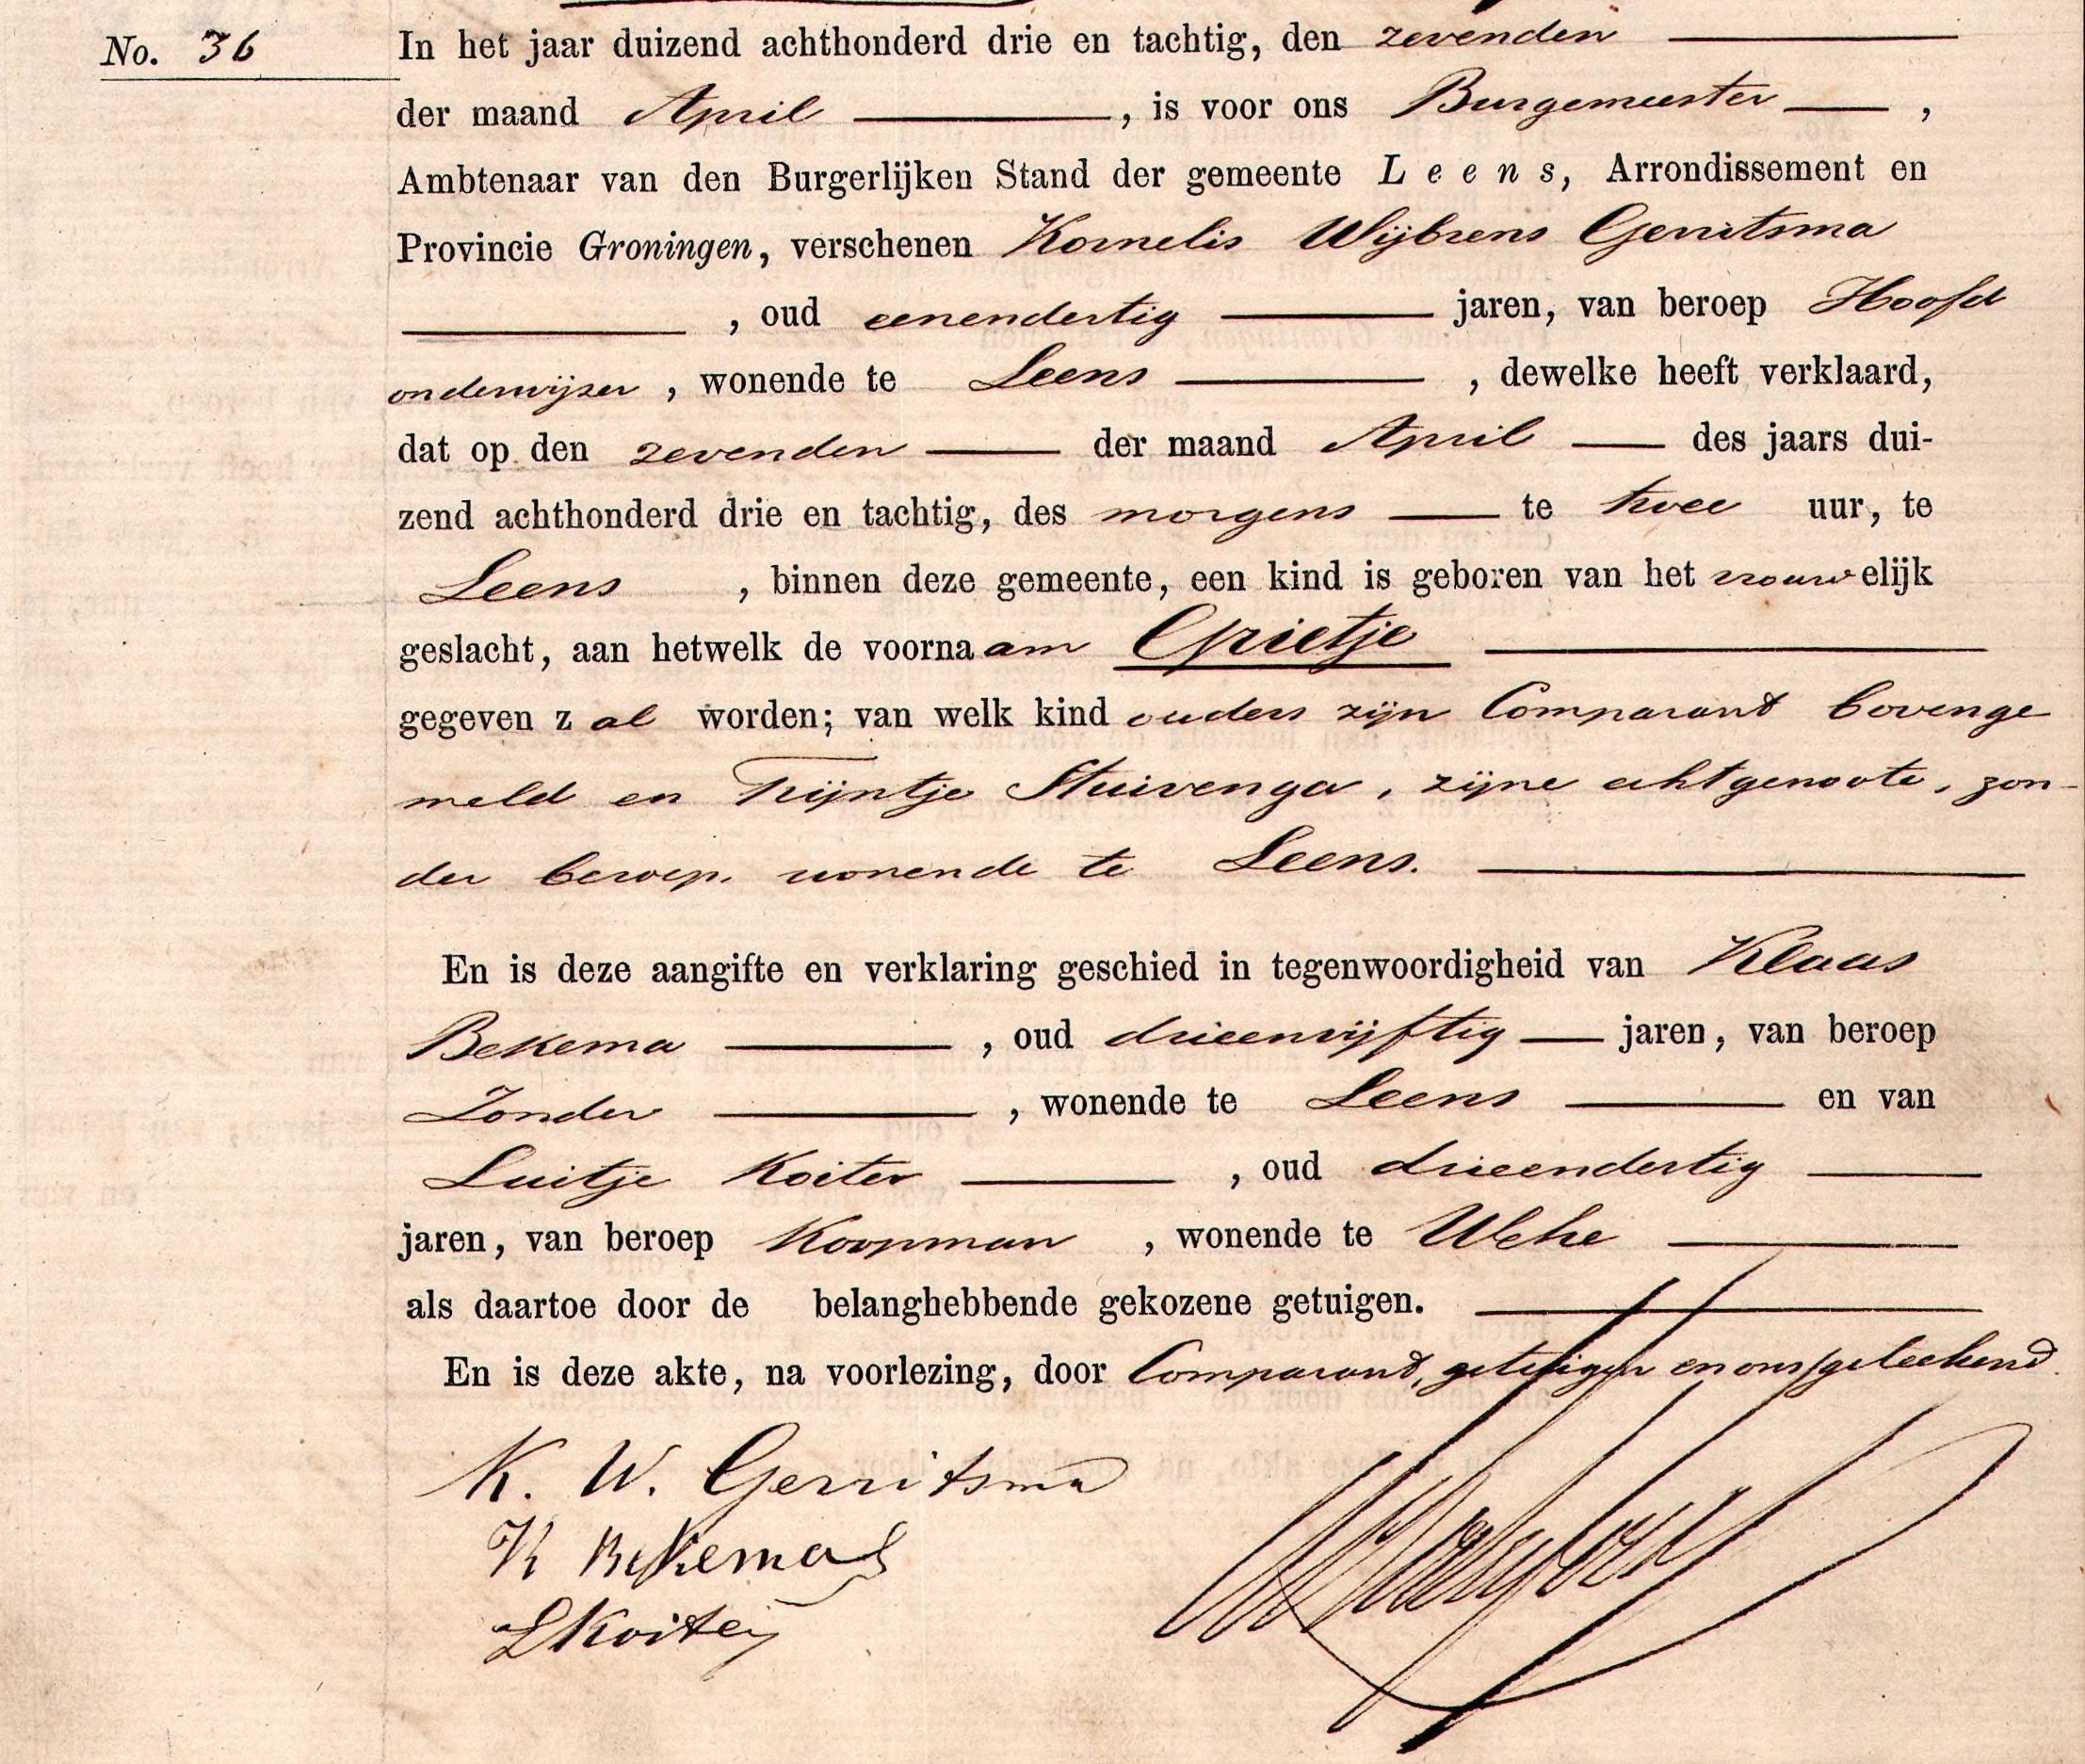 No. 36
In het jaar duizend achthonderd drie en tachtig, den zevenden
der maand April, is voor ons Burgemeester,
Ambtenaar van den Burgerlijken Stand der gemeente Leens, Arrondissement en
Provincie Groningen, verschenen Kornelis Wijbrens Gerritsma
, oud eenendertig jaren, van beroep Hoofd
onderwijzer, wonende te Leens, dewelke heeft verklaard,
dat op den zevenden der maand April des jaars dui-
zend achthonderd drie en tachtig, des morgens te twee uur, te
Leens, binnen deze gemeente, een kind is geboren van het vrouwelijk
geslacht, aan hetwelk de voornaam Grietje
gegeven zal worden; van welk kind ouders zijn Comparant bovenge
meld en Trijntje Stuivenga, zijne echtgenoote, zon-
der beroep, wonende te Leens.
En is deze aangifte en verklaring geschied in tegenwoordigheid van Klaas
Bekema, oud drieenvijftig jaren, van beroep
Zonder, wonende te Leens en van
Luitje Koiter, oud drieendertig
jaren, van beroep Koopman, wonende te Wehe
als daartoe door de belanghebbende gekozene getuigen.
En is deze akte, na voorlezing, door Comparant, getuigen en ons geteekend.
K. W. Gerritsma
K Bekema
L Koiter